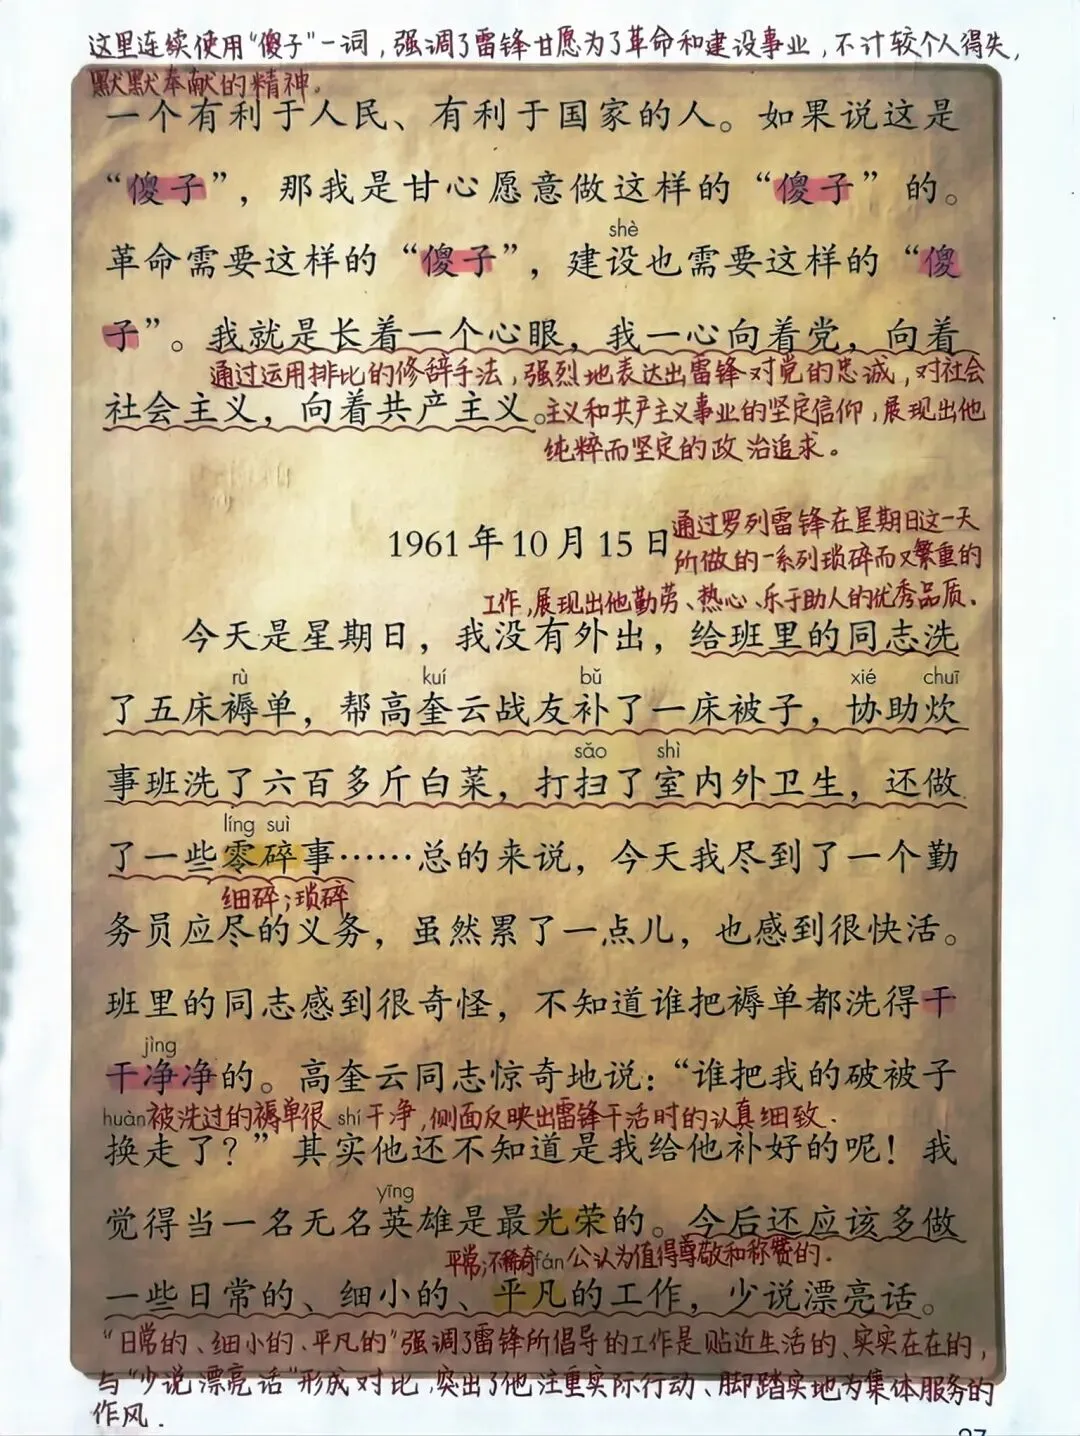 这里连续使用“傻子”一词，强调了雷锋甘愿为了革命和建设事业，不计较个人得失，
默默奉献的精神。
一个有利于人民、有利于国家的人。如果说这是
“傻子”，那我是甘心愿意做这样的“傻子”的。
shè
革命需要这样的“傻子”，建设也需要这样的“傻
子”。我就是长着一个心眼，我一心向着党，向着
通过运用排比的修辞手法，强烈地表达出雷锋对党的忠诚，对社会
社会主义，向着共产主义。
主义和共产主义事业的坚定信仰，展现出他
纯粹而坚定的政治追求。
1961年10月15日
通过罗列雷锋在星期日这一天
所做的一系列琐碎而又繁重的
工作，展现出他勤劳、热心、乐于助人的优秀品质．
今天是星期日，我没有外出，给班里的同志洗
rù kuí bǔ xié chuī
了五床褥单，帮高奎云战友补了一床被子，协助炊
sǎo shì
事班洗了六百多斤白菜，打扫了室内外卫生，还做
líng suì
了一些零碎事……总的来说，今天我尽到了一个勤
细碎；琐碎
务员应尽的义务，虽然累了一点儿，也感到很快活。
班里的同志感到很奇怪，不知道谁把褥单都洗得干
jìng
干净净的。高奎云同志惊奇地说：“谁把我的破被子
huàn 被洗过的褥单很 shí 干净，侧面反映出雷锋干活时的认真细致．
换走了？”其实他还不知道是我给他补好的呢！我
yīng
觉得当一名无名英雄是最光荣的。今后还应该多做
平常；不稀奇 fán 公认为值得尊敬和称赞的．
一些日常的、细小的、平凡的工作，少说漂亮话。
“日常的、细小的、平凡的”强调了雷锋所倡导的工作是贴近生活的、实实在在的，
与“少说漂亮话”形成对比，突出了他注重实际行动、脚踏实地为集体服务的
作风．